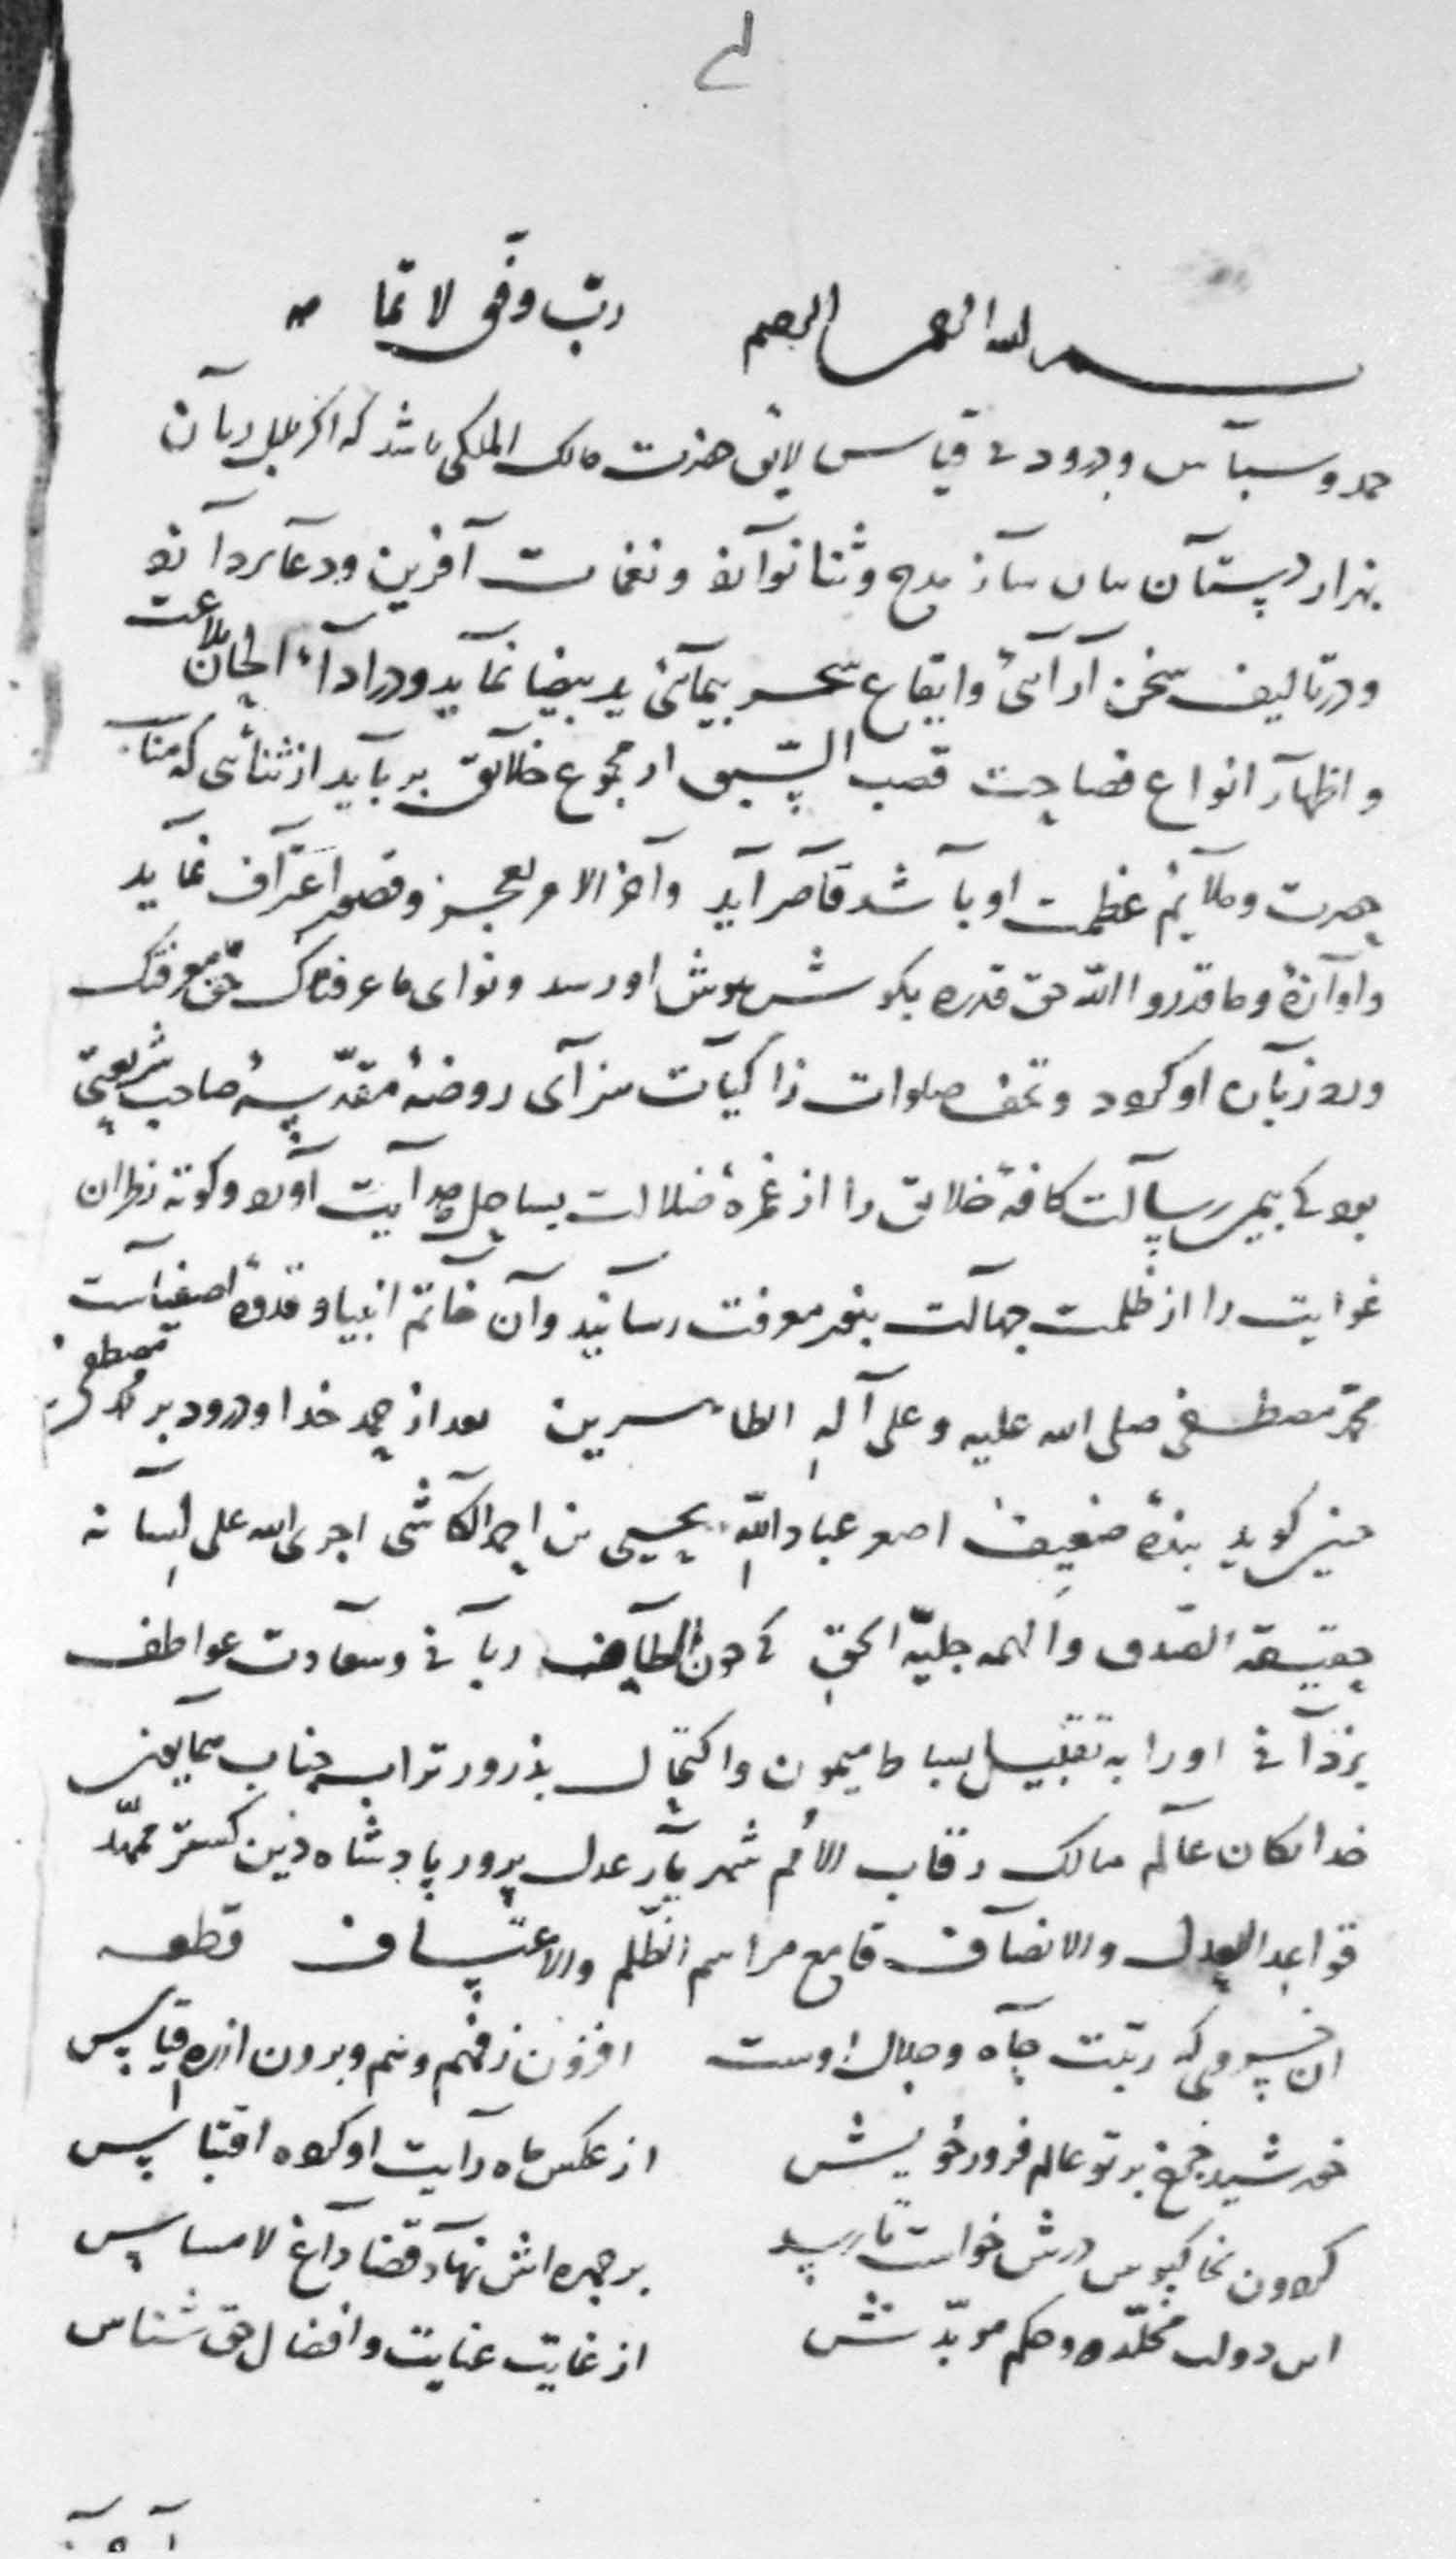 بسم الله الرحمن الرحیم ربّ وفّق لاتمامه
حمد و سپاس و درود بی قیاس لایق حضرت مالک الملکی باشد که اگر بلبل زبان
هزار دستان بیان ساز مدح و ثنا نوازد و نغمات آفرین و دعا پردازد
و در تالیف سخن آرائی و ایقاع سحر پیمائی ید بیضا نماید و در اداء الحان بلاغت
و اظهار انواع فصاحت قصب السّبق از مجموع خلایق برباید از ثنائی که مناسب
حضرت و ملایم عظمت او باشد قاصر آید و آخر الامر بعجز و قصور اعتراف نماید
و آوازهٔ و ما قدروا اللّه حق قدره بگوش هوش او رسد و نوای ما عرفناک حقّ معرفتک
ورد زبان او گردد و تحف صلوات زاکیات سزای روضهٔ مقدّسهٔ صاحب شریعتی
بود کی بیمن رسالت کافهٔ خلایق را از غمرهٔ ضلالت بساحل هدایت آورد و کوته نظران
غوایت را از ظلمت جهالت بنور معرفت رسانید و آن خاتم انبیا و قدوهٔ اصفیاست
محمّد مصطفی صلی الله علیه و علی آله الطاهرین بعد از حمد خدا و درود بر محمد مصطفی
چنین گوید بندهٔ ضعیف اصغر عباد اللّه یحیی بن احمد الکاشی اجری الله علی لسانه
حقیقة الصّدق و الهمه جلیّة الحق کی چون الطاف ربانی و سعادت عواطف
یزدانی او را به تقبیل بساط میمون و اکتحال بذرور تراب جناب همایون
خدایگان عالم مالک رقاب الأمم شهریار عدل پرور پادشاه دین گستر ممهّد
قواعد العدل و الانصاف قامع مراسم الظّلم و الاعتساف قطعه
آن خسروی که رتبت جاه و جلال اوست افزون ز فهم و وهم و برون از ره قیاس
خورشید چرخ پرتو عالم فروز خویش از عکس ماه رایت او کرده اقتباس
گردون بخاکبوس درش خواست تا رسد بر چهره اش نهاد قضا داغ لا مساس
این دولت مخلّد و حکم موبّدش از غایت عنایت و افضال حق شناس